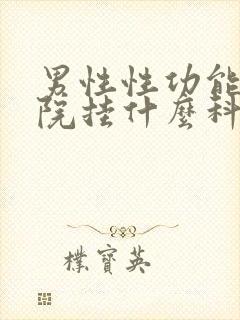 男性性功能
院挂什麼科
樸寶英